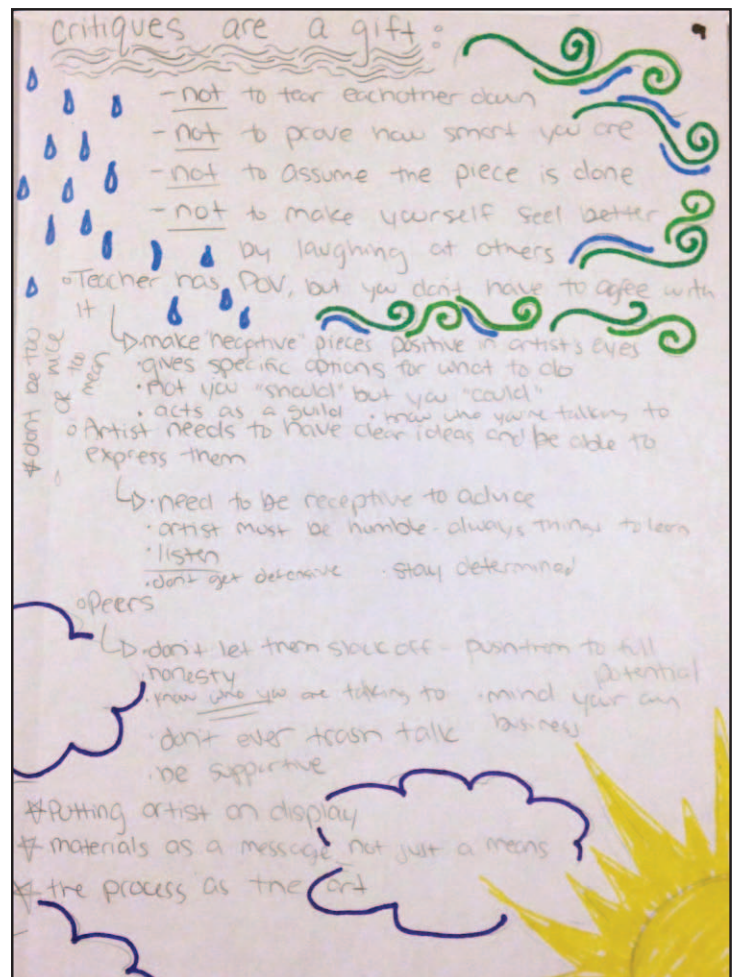 critiques are a gift:
9
- not to tear eachother down
- not to prove how smart you are
- not to assume the piece is done
- not to make yourself feel better
by laughing at others
◦Teacher has POV, but you don't have to agree with
it
↳make "negative" pieces positive in artist's eyes
·gives specific options for what to do
·not you "should" but you "could"
·acts as a guild ·know who you're talking to
◦Artist needs to have clear ideas and be able to
express them
↳·need to be receptive to advice
·artist must be humble - always things to learn
·listen
·don't get defensive ·stay determined
◦Peers
↳·don't let them slack off - push them to full
potential
·honesty
·know who you are talking to ·mind your own
business
·don't ever trash talk
·be supportive
☆Putting artist on display
☆materials as a message, not just a means
☆the process as the art
☆don't be too nice
or too mean